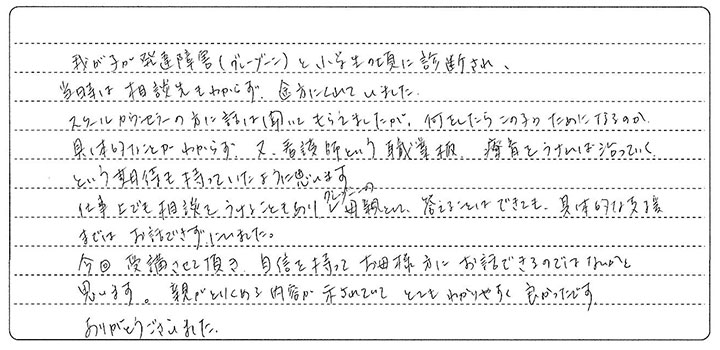 我が子が発達障害(グレーゾーン)と小学生の頃に診断され、
当時は相談先もわからず、途方にくれていました。
スクールカウンセラーの方に話は聞いてもらえましたが、何をしたらこの子のためになるのか
具体的なことがわからず、又、看護師という職業柄、療育をうければ治っていく
という期待も持っていたように思います
仕事上でも相談をうけることもあり グレーゾーンの母親として、答えることはできても、具体的な支援
までは お話できずにいました。
今回 受講させて頂き、自信を持って お母様方に お話できるのではないかと
思います。親がとりくめる内容が示されていて とてもわかりやすく 良かったです
ありがとうございました。